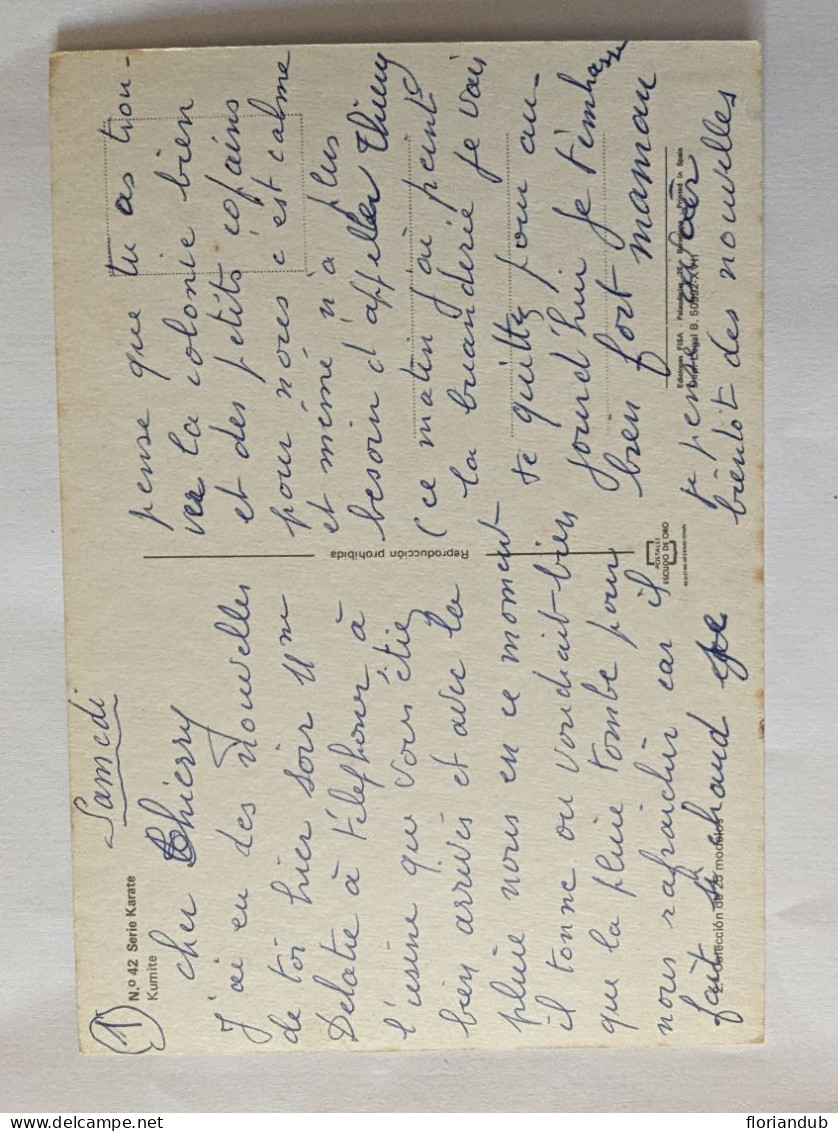 1
N.º 42 Serie Karate
Kumite
Samedi
cher Thierry
J'ai eu des nouvelles
de toi hier soir Mme
Delatre à téléphoner à
l'usine que vous étiez
bien arrivés et avec la
pluie nous en ce moment
il tonne on voudrait bien
que la pluie tombe pour
nous rafraichir car il
fait si chaud je
2.ª selección de 25 modelos
pense que tu as trou-
ver la colonie bien
et des petits copains
pour nous c'est calme
et même n'a plus
besoin d'appeller Thierry
ce matin j'ai peint
la buanderie je vais
te quitter pour au-
jourd'hui je t'embrasse
bien fort maman
je pense avoir
bientôt des nouvelles
Reproducción prohibida
POSTALES
ESCUDO DE ORO
Ediciones FISA Printed in Spain
Depósito Legal B.
floriandub